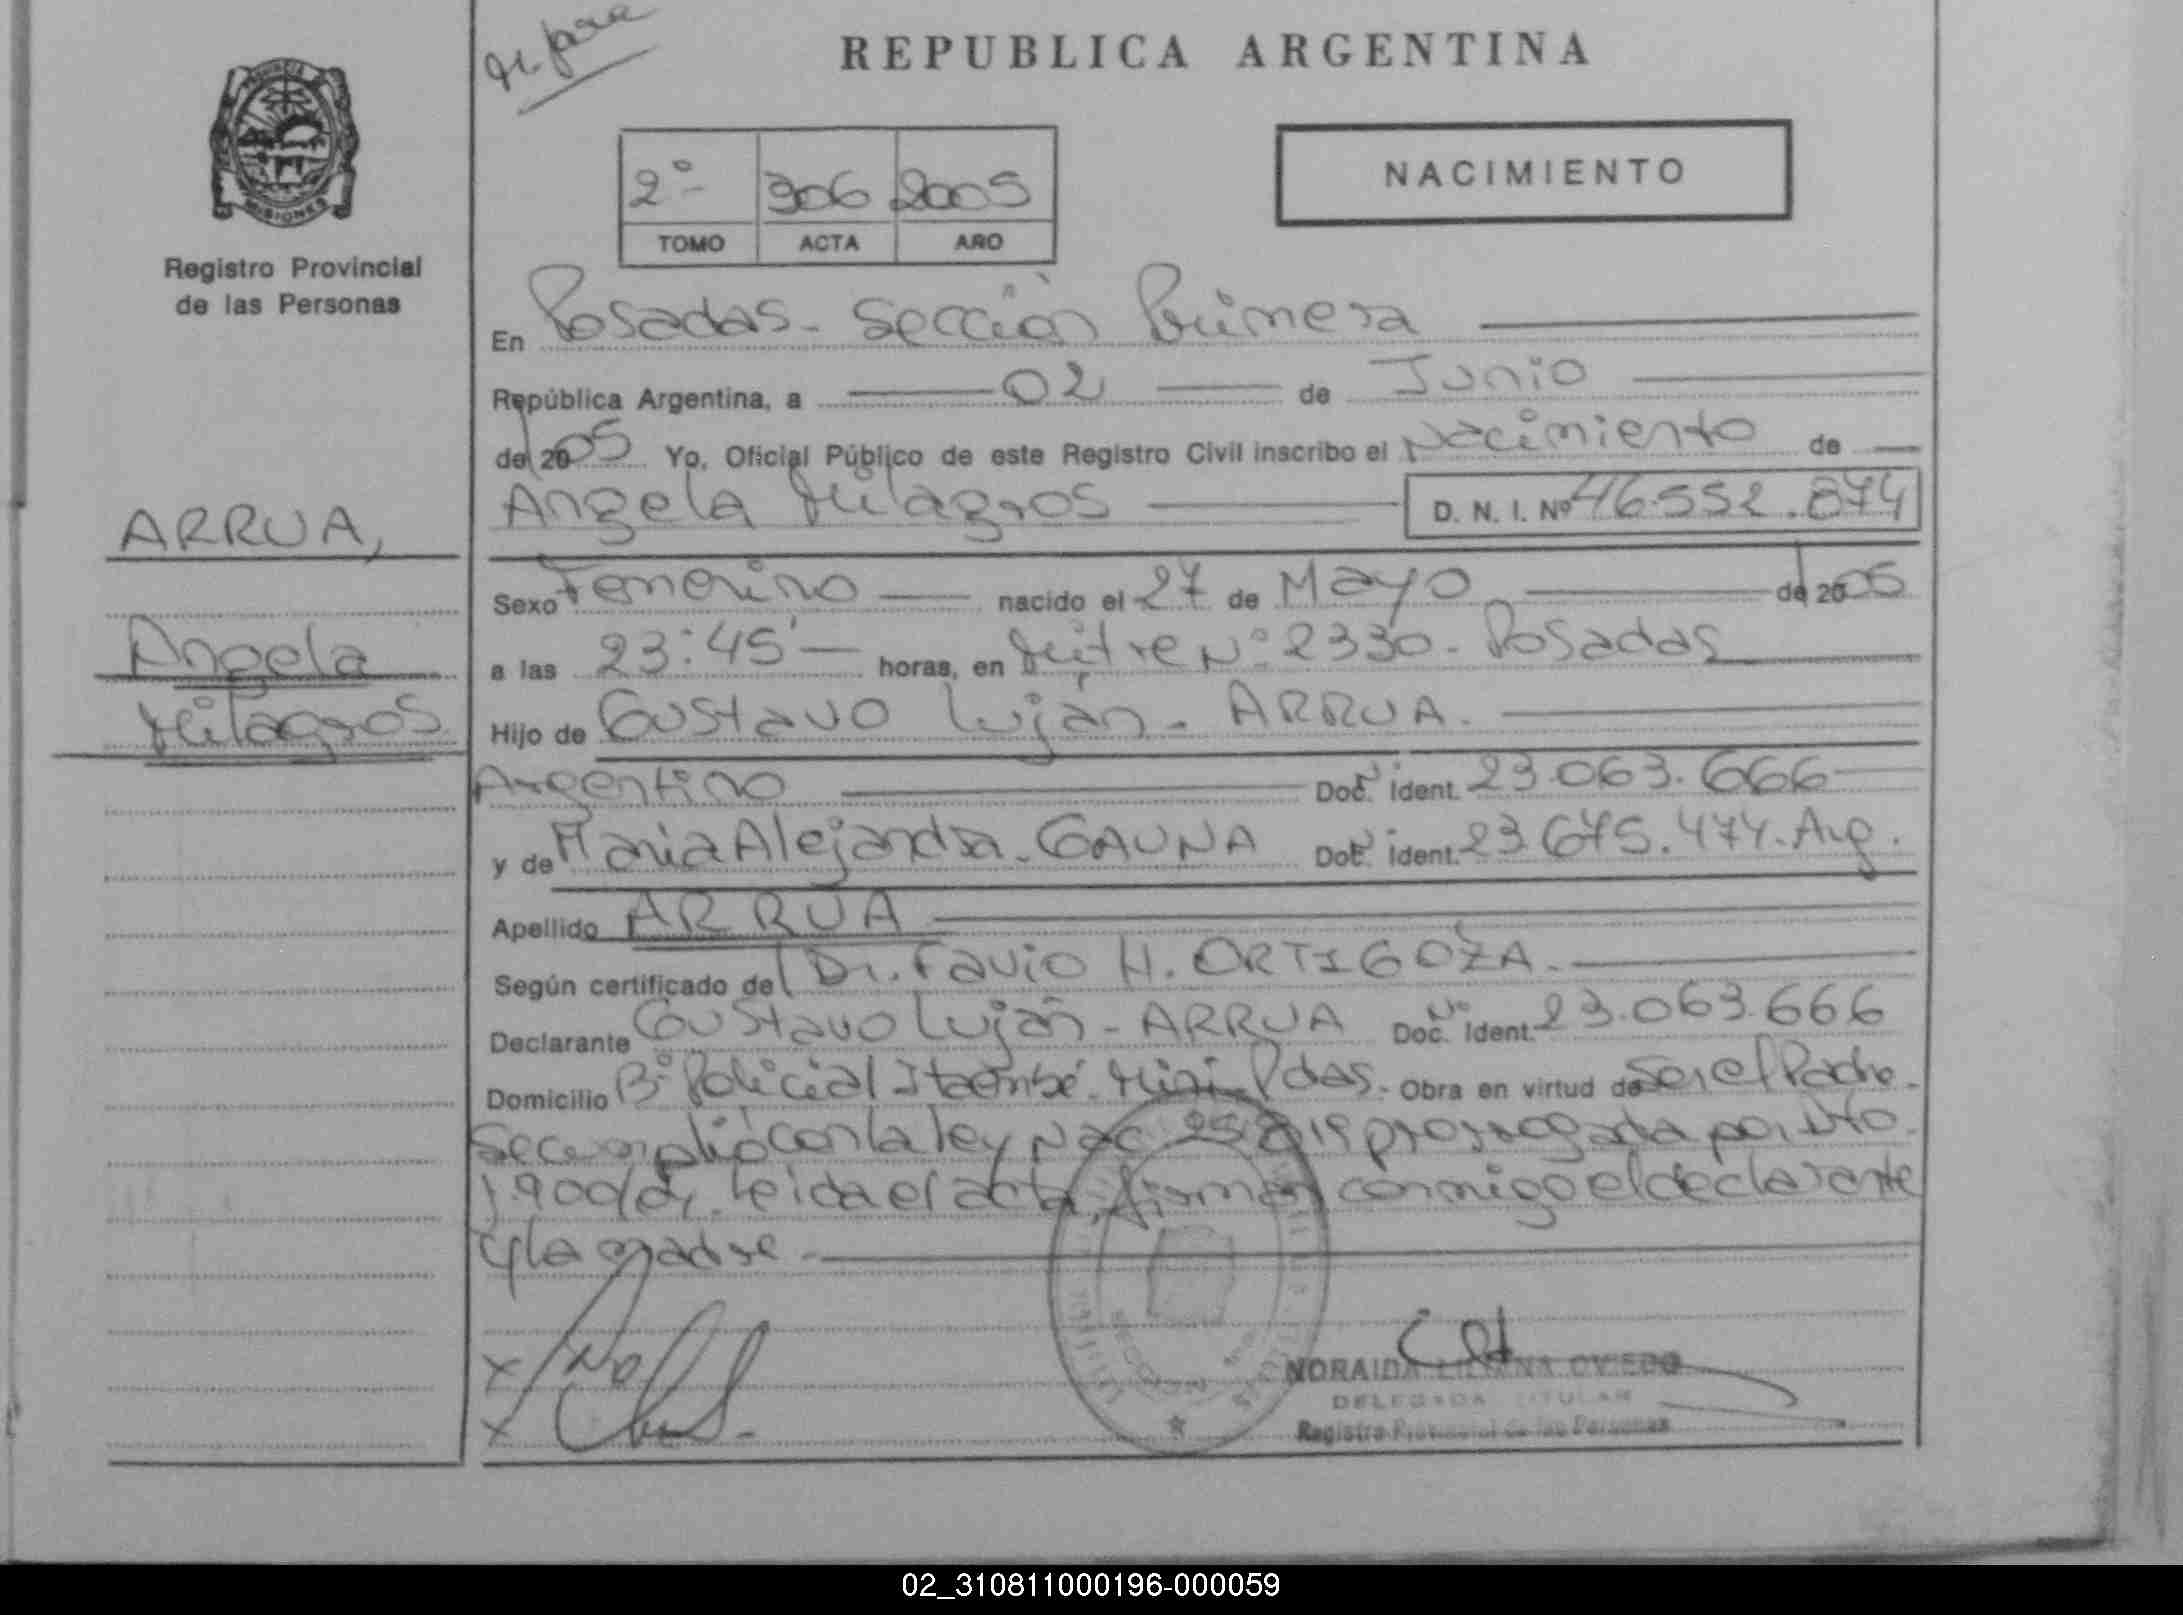 REPUBLICA ARGENTINA
PROVINCIA
MISIONES
Registro Provincial
de las Personas
2º 306 2005
TOMO ACTA AÑO
NACIMIENTO
En Posadas - Sección Primera
República Argentina, a 02 de Junio
del 2005 Yo, Oficial Público de este Registro Civil inscribo el Nacimiento de
Angela Milagros D. N. I. Nº 46.552.874
ARRUA,
Angela
Milagros
Sexo Femenino nacido el 27 de Mayo del 2005
a las 23:45' horas, en Mitre Nº 2330 - Posadas
Hijo de Gustavo Luján - ARRUA.
Argentino Doc. Ident. 23.063.666
y de Maria Alejandra - GAUNA Doc. Ident. 23.675.474. Arg.
Apellido ARRUA
Según certificado del Dr. Favio H. ORTIGOZA.
Declarante Gustavo Luján - ARRUA Doc. Ident. 23.063.666
Domicilio Bº Policial Itaembé Mini - Pdas. Obra en virtud de Ser el Padre.
Se cumplió con la ley Nac. 25.819 prorrogada por Dto.
1.900/04. Leida el acta, firman conmigo el declarante
y la madre.
NORAIDA LILIANA OVIEDO
DELEGADA TITULAR
Registro Provincial de las Personas
02_310811000196-000059